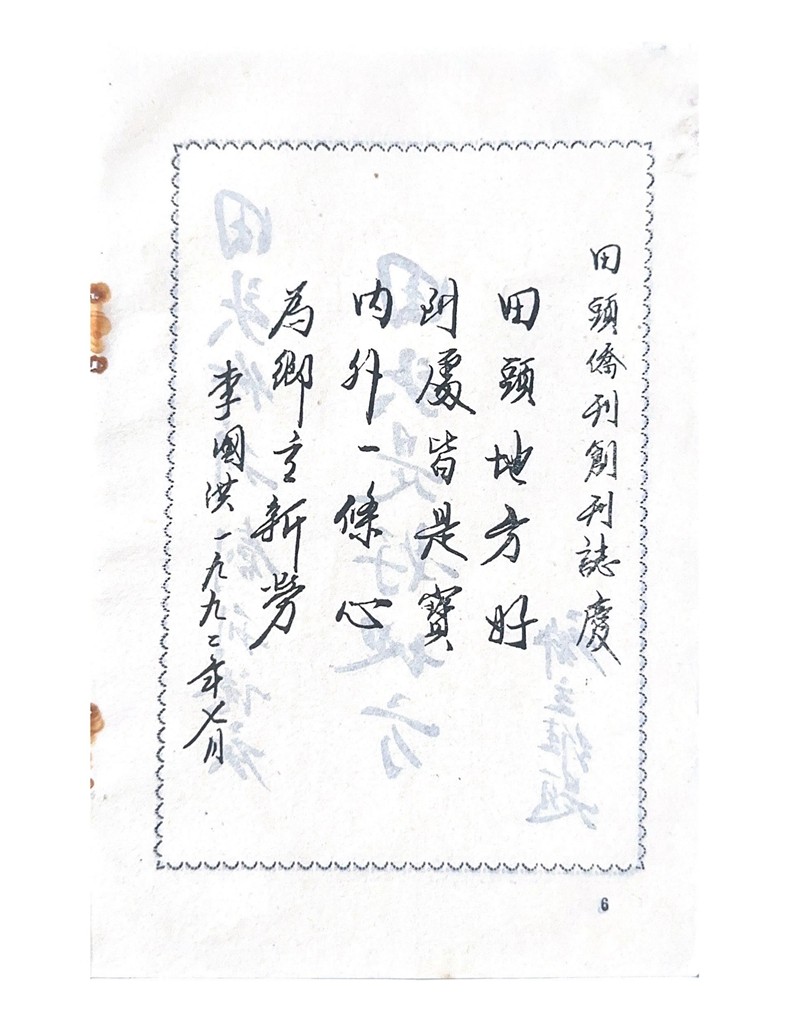 田頭僑刊創刊誌慶
田頭地方好
到處皆是寶
內外一條心
為鄉立新勞
李國洪一九九二年七月
6